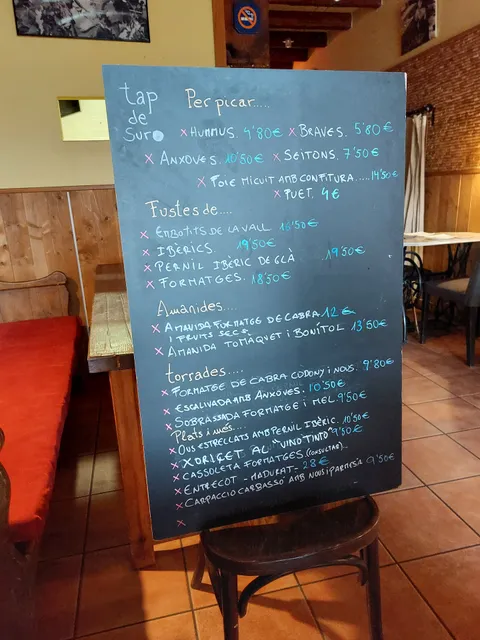 tap
de
suro
Per picar.....
× Hummus. 9'80€ × Braves. 5'80€
× Anxoves. 10'50€ × Seitons. 7'50€
× Foie micuit amb confitura.....14'50€
× Fuet. 4€
Fustes de....
× Embotits de la vall
× Ibèrics. 19'50€
× Pernil ibèric de glà 19'50€
× Formatges. 18'50€
Amanides....
× Amanida formatge de cabra 12€
i fruts secs
× Amanida tomàquet i bonítol 13'50€
torrades....
× Formatge de cabra codony i nous. 9'80€
× Escalivada amb anxoves. 10'50€
× Sobrassada formatge i mel 9'50€
Plats i més....
× Ous estrellats amb pernil ibèric. 10'50€
× Xoriçet al "vino tinto" 9'50€
× Cassoleta formatges (consultar)...
× Entrecot - madurat - 28€
× Carpaccio carbassó amb nous i parmesà 9'50€
×